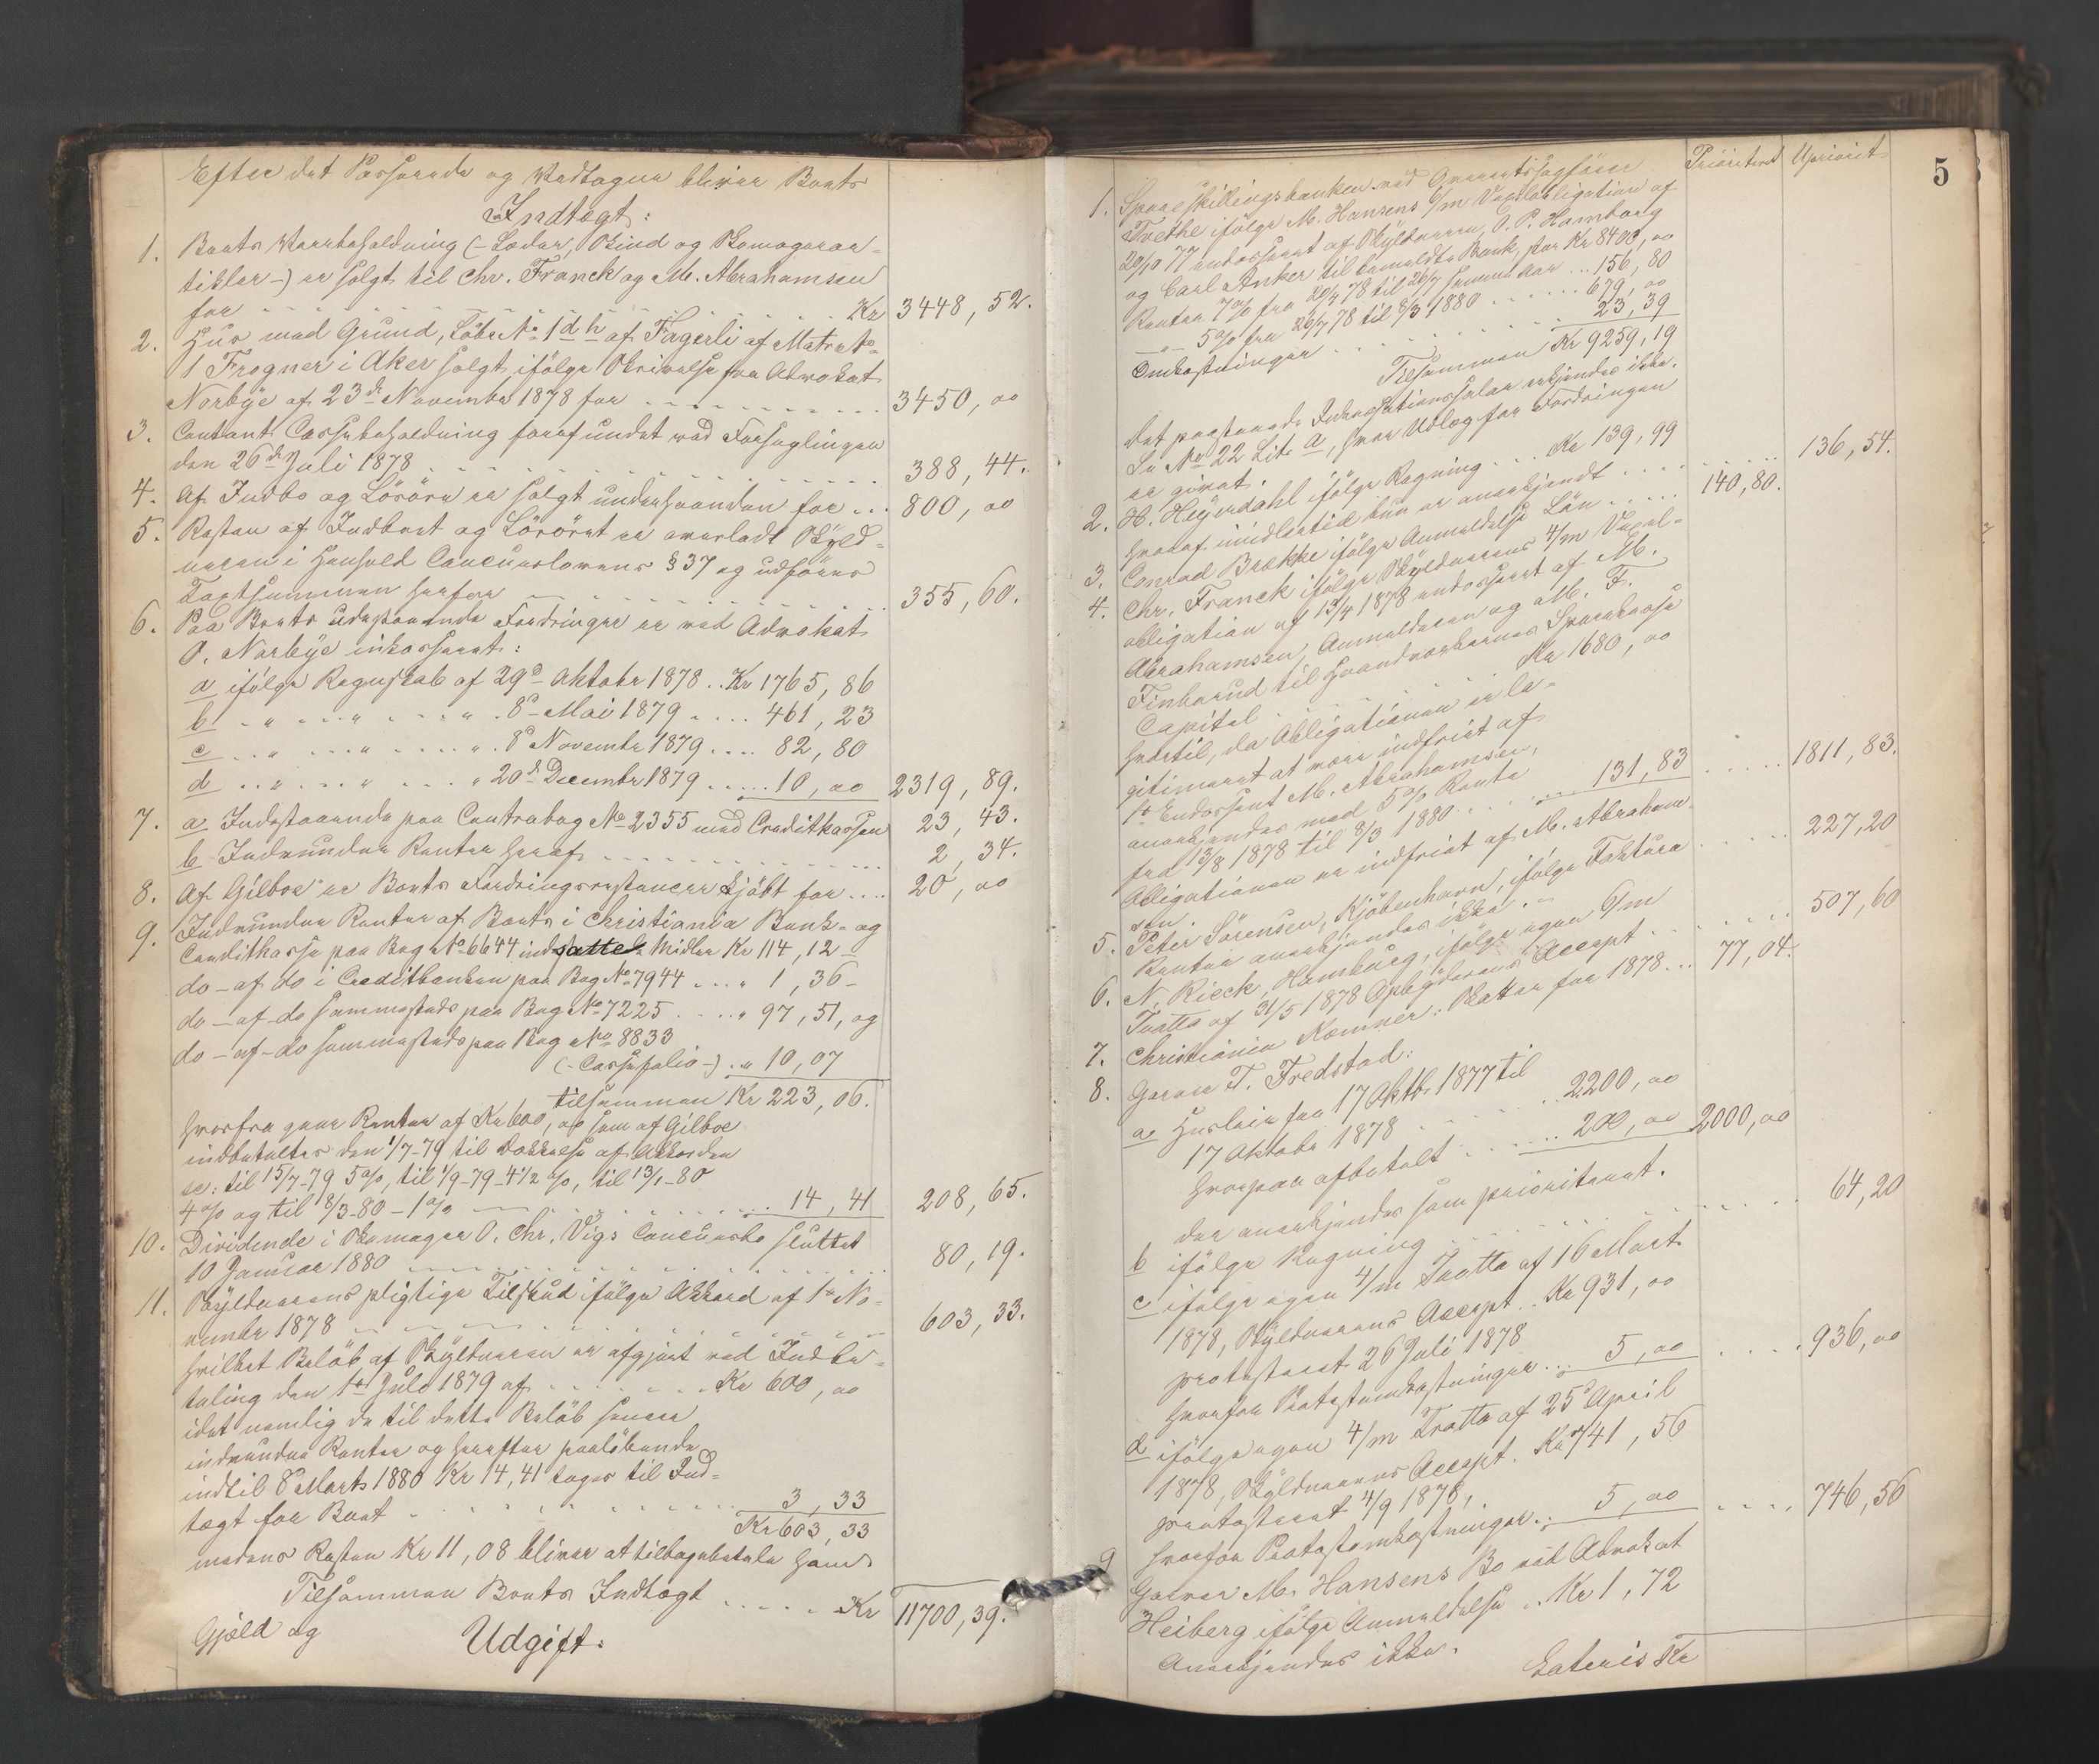 Efter det Passerede og Vedtagne bliver Boets
Indtægt:
1. Boets Varebeholdning (- Læder, Skind og Skomagerar-
tikler -) er solgt til Chr. Franck og M. Abrahamsen
for . . . . . . Kr 3448, 52.
2. Hus med Grund, Löbe No 1 d h af Fagerli af Matr. No
1 Frogner i Aker solgt ifölge Skrivelse fra Advokat
Norbye af 23de November 1878 for . . . . 3450, 00
3. Contant Cassebeholdning forefundet ved Forseglingen
den 26de Juli 1878 . . . . . 388, 44.
4. Af Indbo og Lösöre er solgt underhaanden for . . . 800, 00
5. Resten af Indboet og Lösöret er overladt Skyld-
neren i Henhold Concurslovens § 37 og udföres
Taxtsummen herfor . . . . . 355, 60.
6. Paa Boets udestaaende Fordringer er ved Advokat
O. Norbye inkasseret:
a ifölge Regnskab af 29de Oktober 1878 . . Kr 1765, 86
b . " . . . " . . . " . 8de Mai 1879 . . . . 461, 23
c . . " . . . " . . . " . 8de November 1879 . . . . 82, 80
d . . " . . . " . . . " 20de December 1879 . . . . 10, 00 2319, 89.
7. a Indestaaende paa Contrabog No 2355 med Creditkassen 23, 43.
b Indvundne Renter heraf . . . . . 2, 34.
8. Af Gilboe er Boets Fordringsrestancer kjöbt for . . . . 20, 00
9. Indvundne Renter af Boets i Christiania Bank- og
Creditkasse paa Bog No 6644 indsatte Midler Kr 114, 12 -
do - af do i Creditbanken paa Bog No 7944 . . . " 1, 36 -
do - af - do sammesteds paa Bog No 7225 . . . . " 97, 51, og
do - af - do sammesteds paa Bog No 8833
(- Cassefolio -) . " 10, 07
tilsammen Kr 223, 06.
hvorfra gaar Renter af Kr 600, 00 som af Gilboe
indbetaltes den 1/7-79 til Dækkelse af Akkorden
sc: til 15/7-79 5 %, til 1/9-79 4 1/2 %, til 13/1-80
4 % og til 8/3-80 - 1 % . . . . . 14, 41 208, 65.
10. Dividende i Skomager O. Chr. Vigs Concursbo sluttet
10 Januar 1880 . . . . . 80, 19.
11. Skyldnerens pligtige Tilskud ifölge Akkord af 1ste No-
vember 1878 . . . . . 603, 33.
hvilket Belöb af Skyldneren er afgjort ved Indbe-
taling den 1ste Juli 1879 af . . . . . Kr 600, 00
idet nemlig de til dette Belöb senere
indvundne Renter og herefter paalöbende
indtil 8de Marts 1880 Kr 14, 41 tages til Ind-
tægt for Boet . . . . . 3, 33
Kr 603, 33
medens Resten Kr 11, 08 bliver at tilbagebetale ham
Tilsammen Boets Indtægt . . . . . Kr 11700, 39.
Gjæld og
Udgift:
5
Prioriteret Upriorit
1. Spareskillingsbanken ved Overretssagförer
Trethe ifölge M. Hansens 6/m Vexelobligation af
20/10 77 endosseret af Skyldneren, O. P. Hamborg
og Carl Anker til bemeldte Bank, stor Kr 8400, 00
Renter 7 % fra 20/4 78 til 26/7 samme Aar . . . 156, 80
- " - 5 % fra 26/7 78 til 8/3 1880 . . . . . 679, 00
Omkostninger . . . . . 23, 39
Tilsammen Kr 9259, 19
Det paastaaede Inkassationssalær erkjendes ikke.
Se No 22 Lit. a, hvor Udlæg for Fordringen
er givet.
2. H. Heyerdahl ifölge Regning . . . Kr 139, 99
hvoraf imidlertid kun er anerkjendt . . . . . 136, 54.
3. Conrad Brække ifölge Anmeldelse Lön . . . . . 140, 80.
4. Chr. Franck ifölge Skyldnerens 4/m Vexel-
obligation af 13/4 1878 endosseret af M.
Abrahamsen, Anmelderen og M. F.
Finborud til Haandværkernes Sparekasse
Capital . . . . . Kr 1680, 00
hvortil, da Obligationen er le-
gitimeret at være indfriet af
1ste Endossent M. Abrahamsen,
anerkjendes med 5 % Rente
fra 13/8 1878 til 8/3 1880 . . . . . 131, 83 . . . . . 1811, 83.
Obligationen er indfriet af M. Abraham-
sen.
5. Peter Sörensen, Kjöbenhavn, ifölge Faktura . . . . . 227, 20
Renter anerkjendes ikke. -
6. N. Rieck, Hamburg, ifölge egen 6/m
Tratte af 31/5 1878 Opbyderens Accept . . . . . 507, 60
7. Christiania Kæmner: Skatter for 1878 . . . 77, 04.
8. Garver T. Fredstad:
a Husleie fra 17 Oktbr. 1877 til
17 Oktober 1878 . . . . . 2200, 00
hvorpaa afbetalt . . . . . 200, 00 2000, 00
der anerkjendes som prioriteret.
b ifölge Regning . . . . . 64, 20
c ifölge egen 4/m Tratte af 16 Marts
1878, Skyldnerens Accept . . Kr 931, 00
protesteret 26 Juli 1878
hvorfor Protestomkostninger . . . 5, 00 . . . . 936, 00
d ifölge egen 4/m Tratte af 25de April
1878, Skyldnerens Accept . Kr 741, 56
protesteret 4/9 1878,
hvorfor Protestomkostninger . . 5, 00 . . . . 746, 56
9 Garver M. Hansens Bo ved Advokat
Heiberg ifölge Anmeldelse . . Kr 1, 72
Anerkjendes ikke.
Lateris Kr